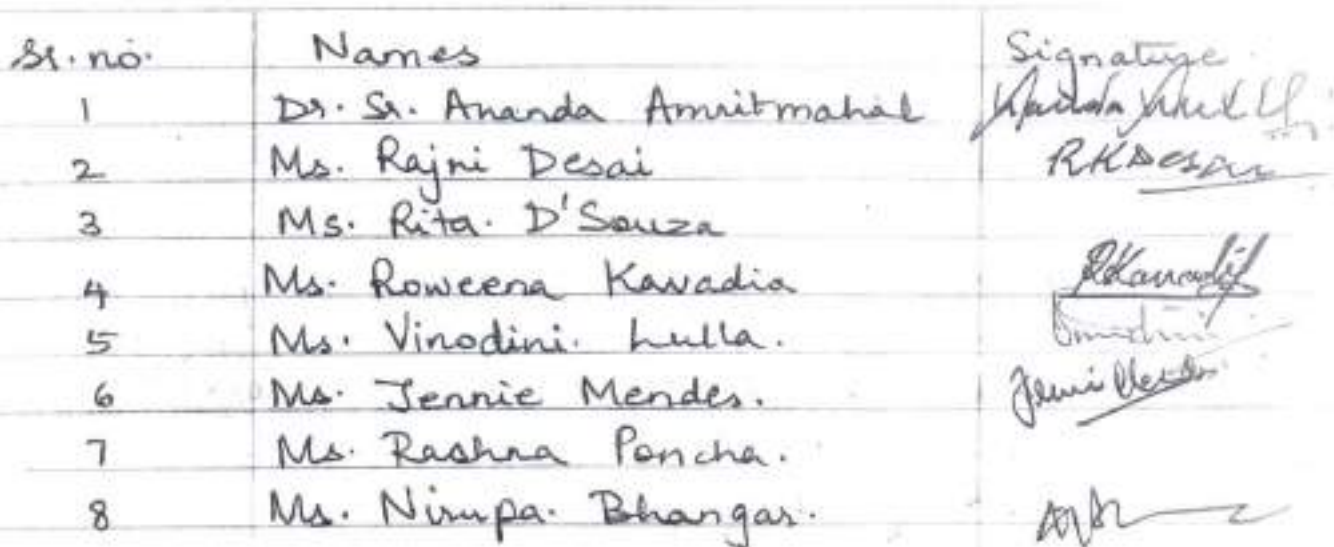 Sr. no. Names Signature
1 Dr. Sr. Ananda Amritmahal
2 Ms. Rajni Desai RKDesai
3 Ms. Rita. D'Souza
4 Ms. Roweena Kavadia RKavadia
5 Ms. Vinodini. Lulla. Vinodini
6 Ms. Jennie Mendes. Jennie Mendes
7 Ms. Rashna Poncha.
8 Ms. Nirupa. Bhangar.